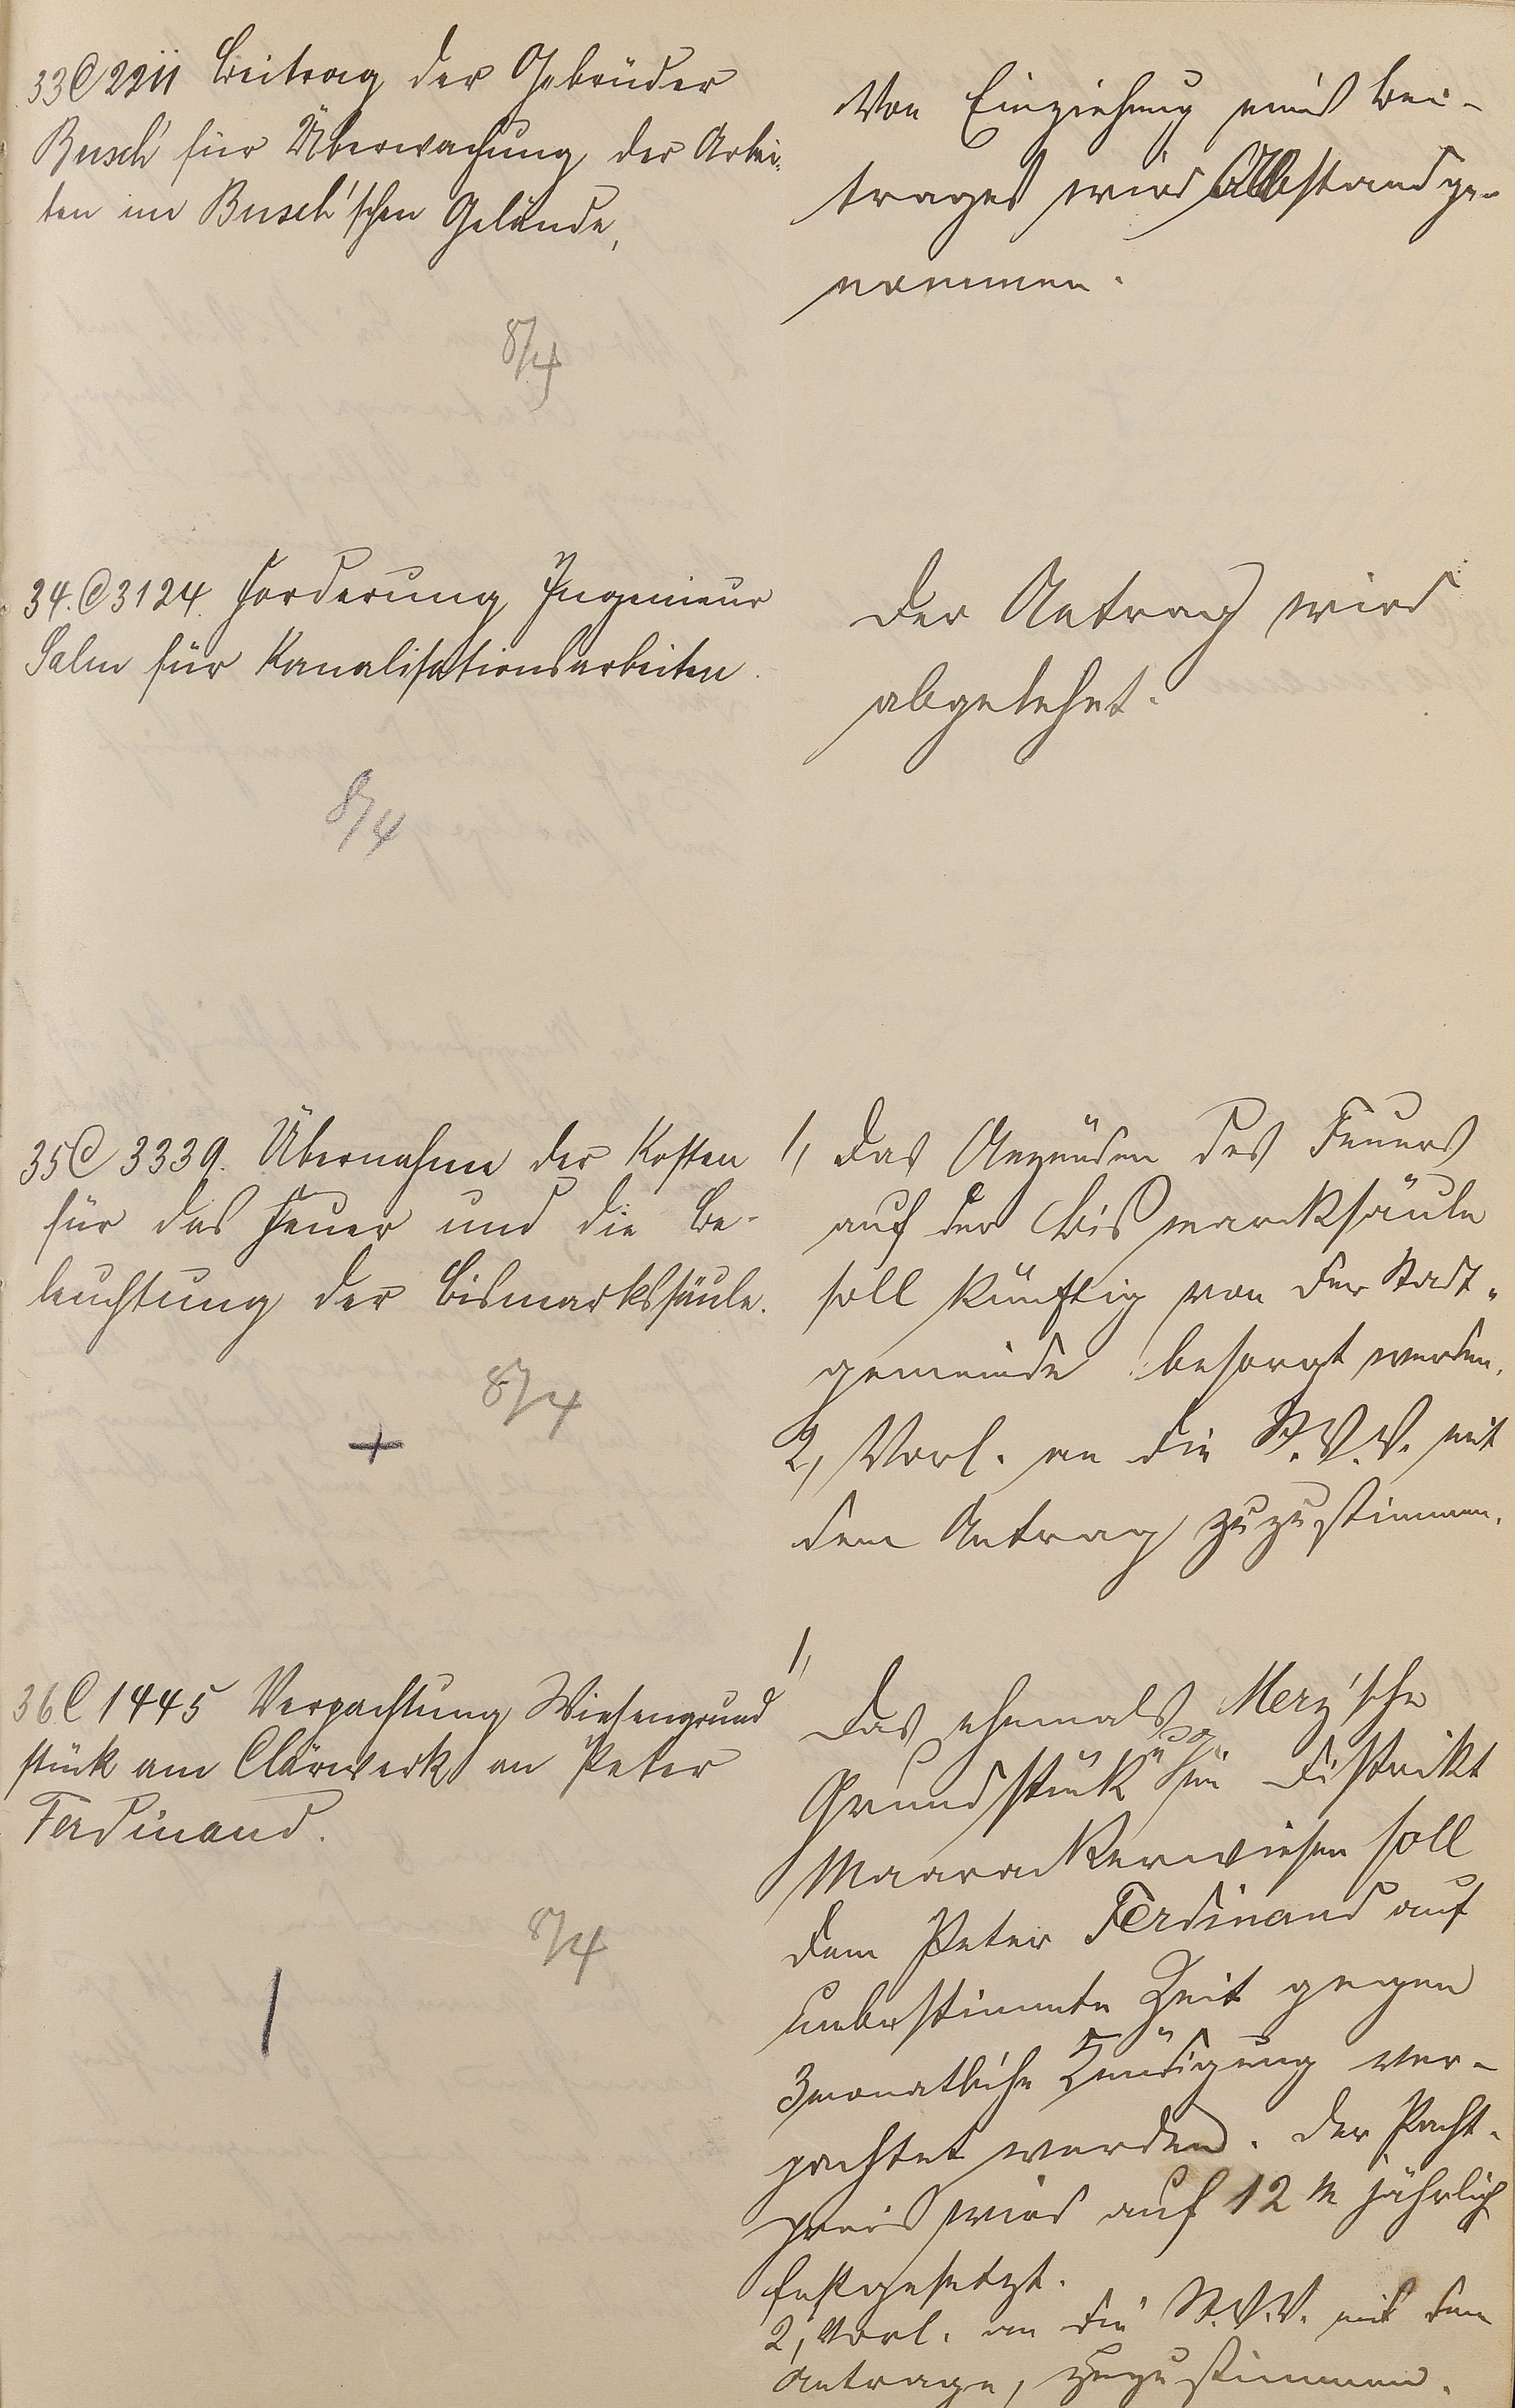 33 C 2211 Beitrag der Gebrüder
Busch für Überwachung der Arbei-
ten im Busch'schen Gelände,
8/4
Von Einziehung eines Bei-
trages wird Abstand ge-
nommen.
34. C 3124. Forderung Ingenieur
Salm für Kanalisationsarbeiten.
8/4
Der Antrag wird
abgelehnt.
35 C 3339. Übernahme der Kosten
für das Feuer und die Be-
leuchtung der Bismarkssäule.
8/4
+
1, Das Anzünden des Feuers
auf der Bismarcksäule
soll künftig von der Stadt-
gemeinde besorgt werden.
2, Vorl. an die St.V.V. mit
dem Antrag zuzustimmen.
36 C 1445 Verpachtung Wiesengrund
stück am Clärwerk an Peter
Ferdinand.
8/4
1,
Das ehemals Merz'sche
Grundstück im Distrikt
Maarackerwiesen soll
dem Peter Ferdinand auf
unbestimmte Zeit gegen
3monatliche Kündigung ver-
pachtet werden. Der Pacht-
preis wird auf 12 M jährlich
festgesetzt.
2, Vorl. an die St.V.V. mit dem
Antrage, zuzustimmen.